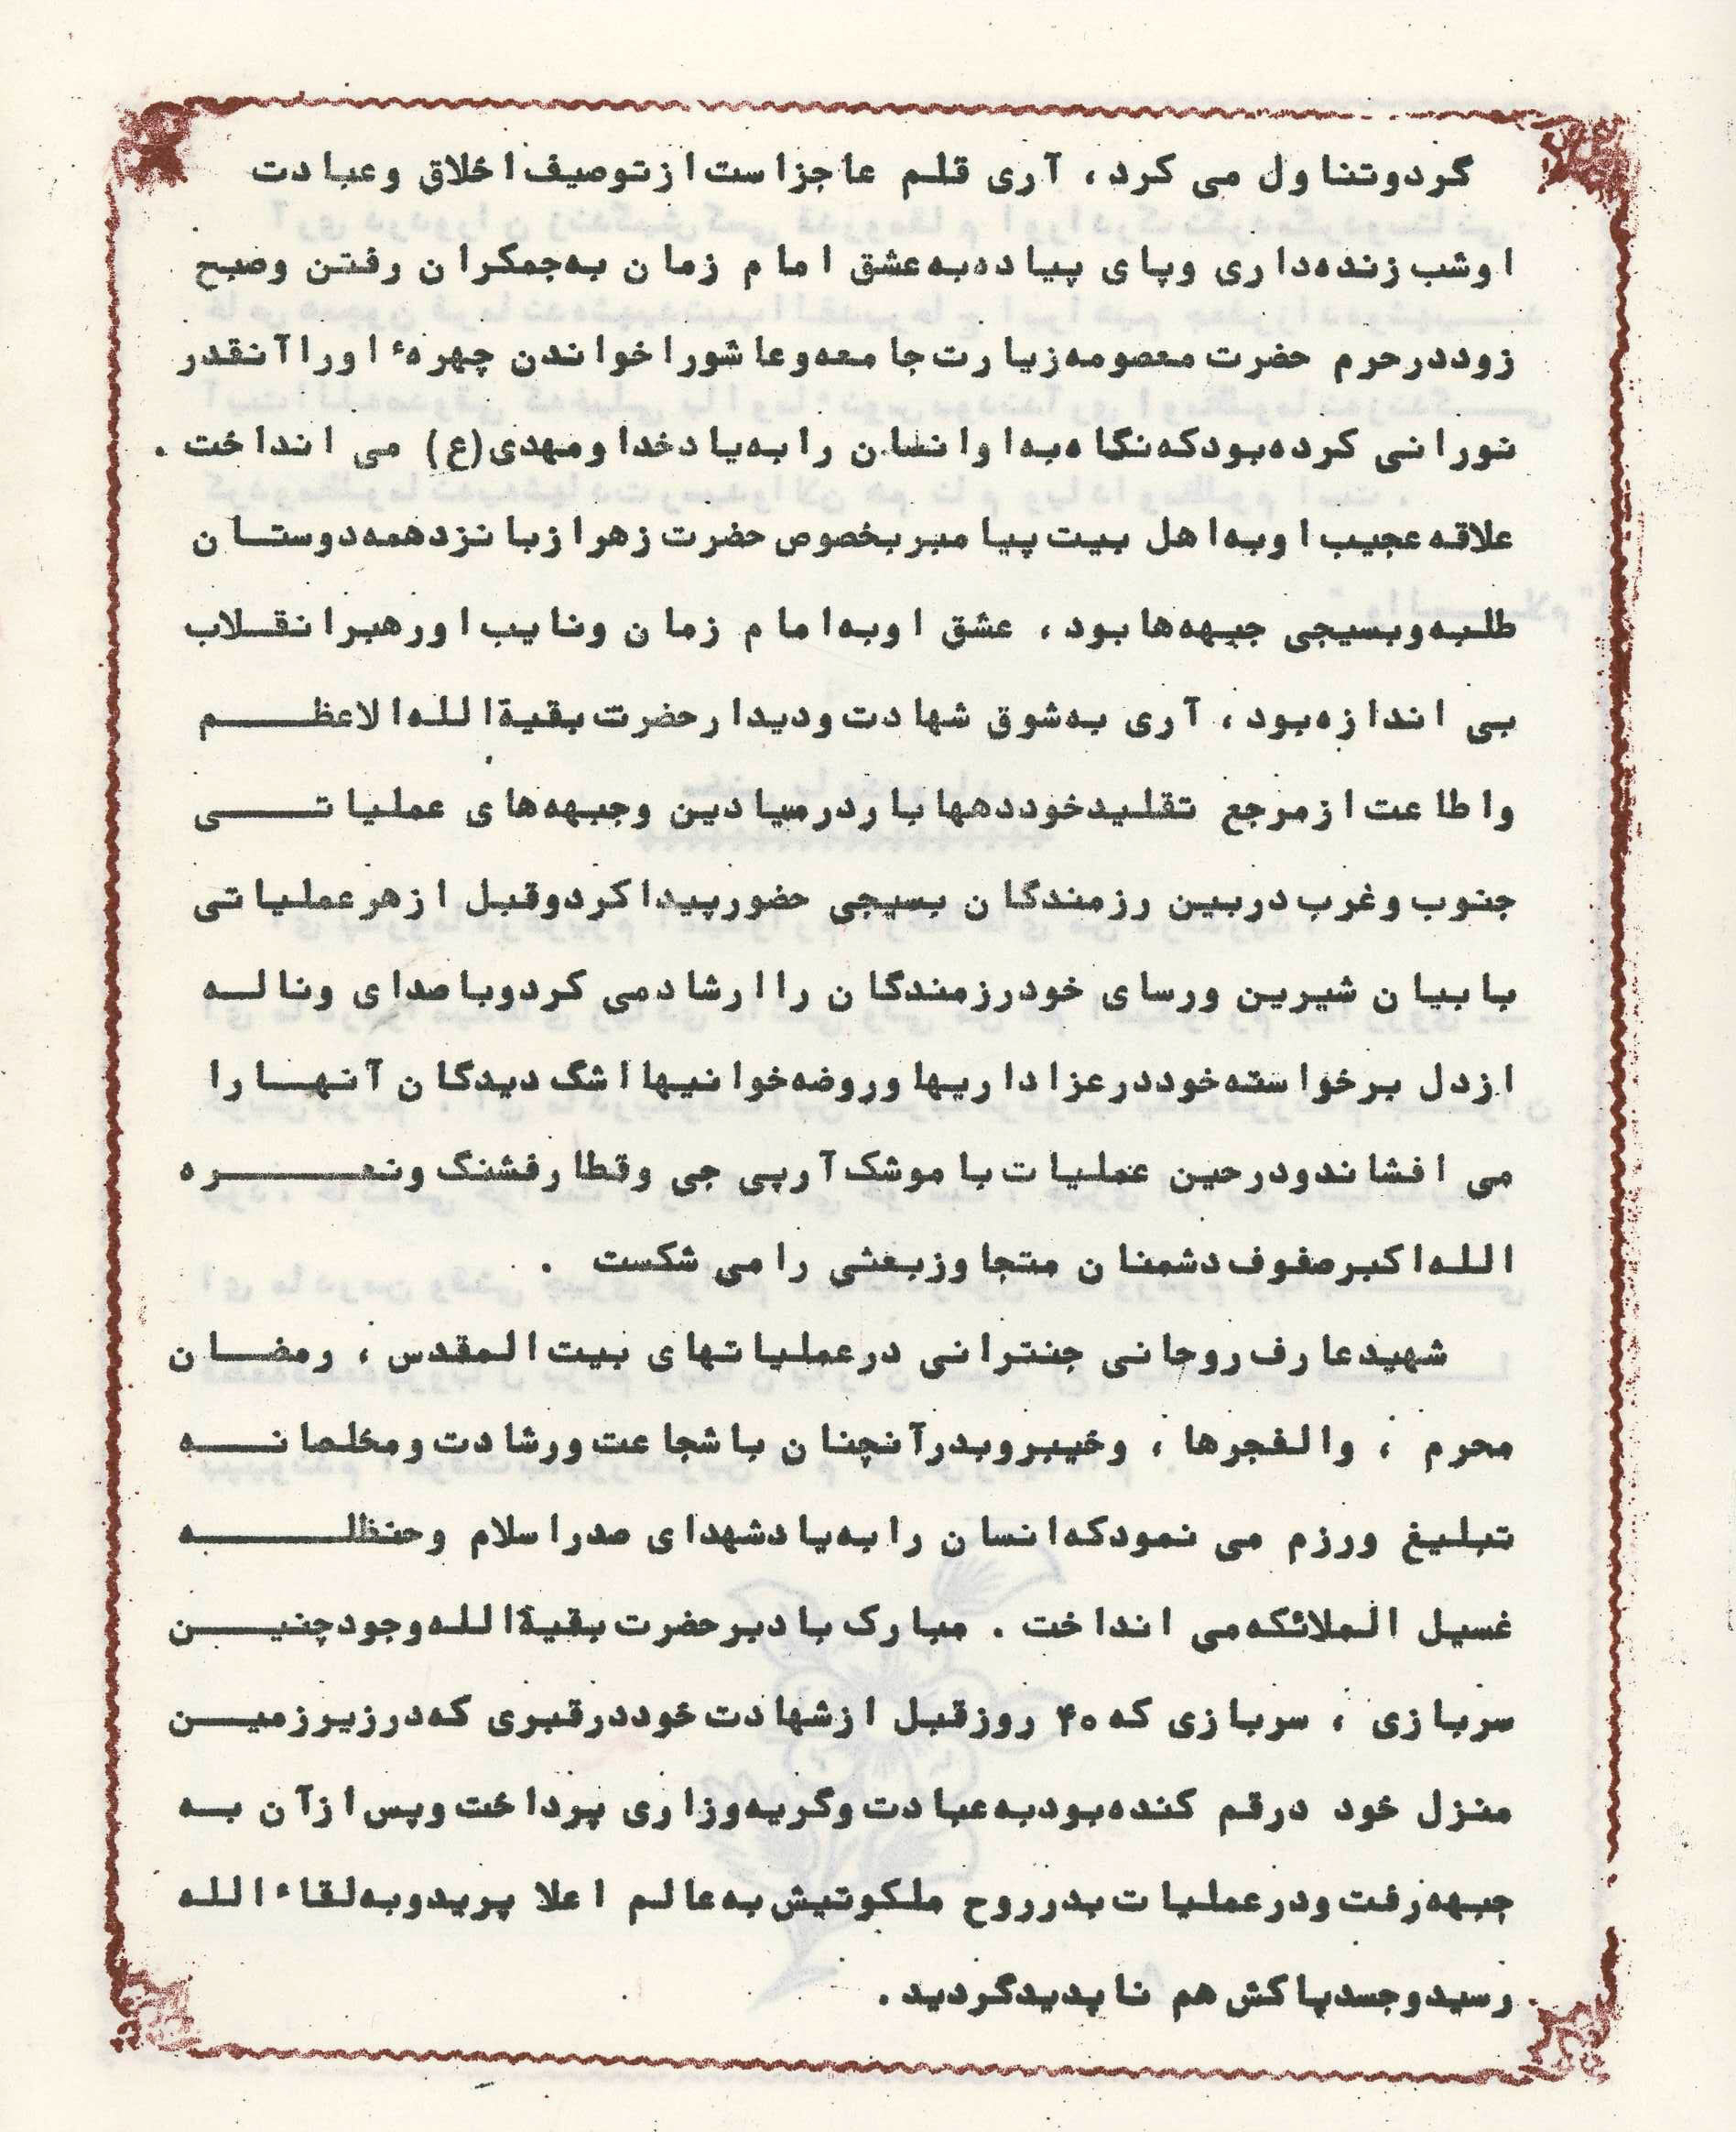 گردوتناول می کرد، آری قلم عاجزاست ازتوصیف اخلاق وعبادت
اوشب زنده‌داری وپای پیاده‌به‌عشق امام زمان به‌جمکران رفتن وصبح
زوددرحرم حضرت معصومه‌زیارت جامعه‌وعاشوراخواندن چهرهٔ اوراآنقدر
نورانی کرده‌بودکه‌نگاه‌به‌اوانسان رابه‌یادخداومهدی(ع) می انداخت .
علاقه‌عجیب اوبه‌اهل بیت پیامبربخصوص حضرت زهراز‌بانزدهمه‌دوستان
طلبه‌وبسیجی جبهه‌هابود، عشق اوبه‌امام زمان ونایب اورهبرانقلاب
بی اندازه‌بود، آری به‌شوق شهادت ودیدارحضرت بقیةالله‌الاعظم
واطاعت ازمرجع تقلیدخودده‍هاباردرمیادین وجبهه‌های عملیاتی
جنوب وغرب دربین رزمندگان بسیجی حضورپیداکردوقبل ازهرعملیاتی
بابیان شیرین ورسای خودرزمندگان راارشادمی کردوباصدای وناله
ازدل برخواسته‌خوددرعزاداریهاوروضه‌خوانیهااشگ دیدگان آنهارا
می افشاندودرحین عملیات باموشک آرپی جی وقطارفشنگ ونعره
الله‌اکبرصفوف دشمنان متجاوزبعثی رامی شکست .
شهیدعارف روحانی جنترانی درعملیاتهای بیت المقدس ، رمضان
محرم ، والفجرها ، وخیبروبدرآنچنان باشجاعت ورشادت ومخلصانه
تبلیغ ورزم می نمودکه‌انسان رابه‌یادشهدای صدراسلام وحنظله
غسیل الملائکه‌می انداخت . مبارک بادبرحضرت بقیةالله‌وجودچنین
سربازی ، سربازی که ۴۰ روزقبل ازشهادت خوددرقبری که‌درزیرزمین
منزل خود درقم کنده‌بودبه‌عبادت وگریه‌وزاری پرداخت وپس ازآن به
جبهه‌رفت ودرعملیات بدرروح ملکوتیش به‌عالم اعلا پریدوبه‌لقاءالله
رسیدوجسدپاکش هم ناپدیدگردید.